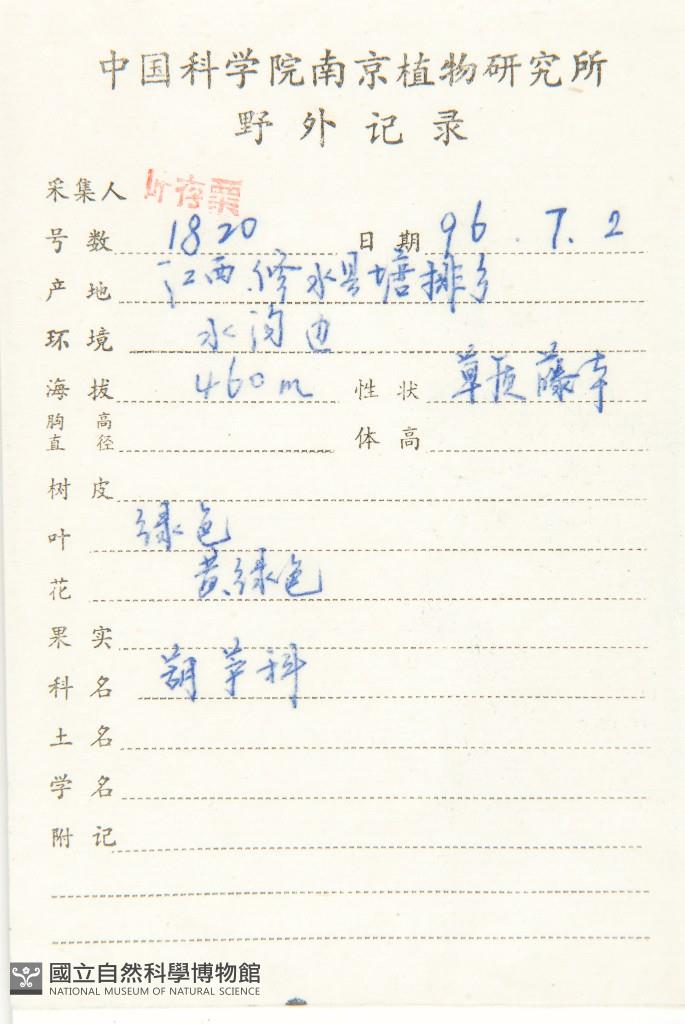 中国科学院南京植物研究所
野外记录
采集人 叶存粟
号数 1820 日期 96.7.2
产地 江西.修水县塘排乡
环境 水沟边
海拔 460m 性状 草质藤本
胸高直径 体高
树皮
叶 绿色
花 黄绿色
果实
科名 葫芦科
土名
学名
附记
國立自然科學博物館
NATIONAL MUSEUM OF NATURAL SCIENCE